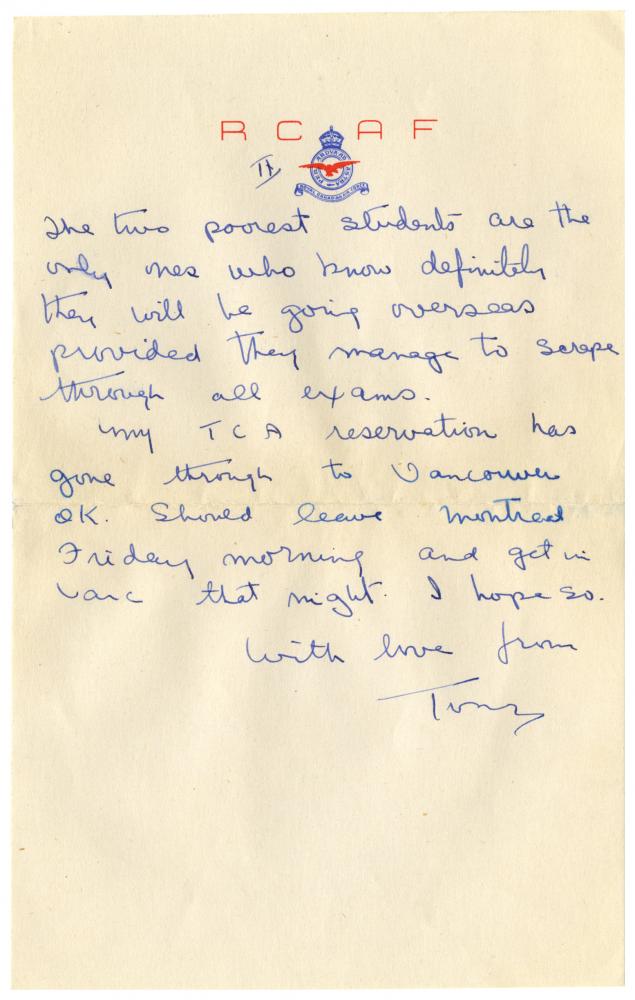 R C A F
PER ARDUA AD ASTRA
ROYAL CANADIAN AIR FORCE
II
The two poorest students are the
only ones who know definitely
they will be going overseas
provided they manage to scrape
through all exams.
My TCA reservation has
gone through to Vancouver
OK. Should leave Montreal
Friday morning and get in
Vanc that night. I hope so.
With love from
Tony